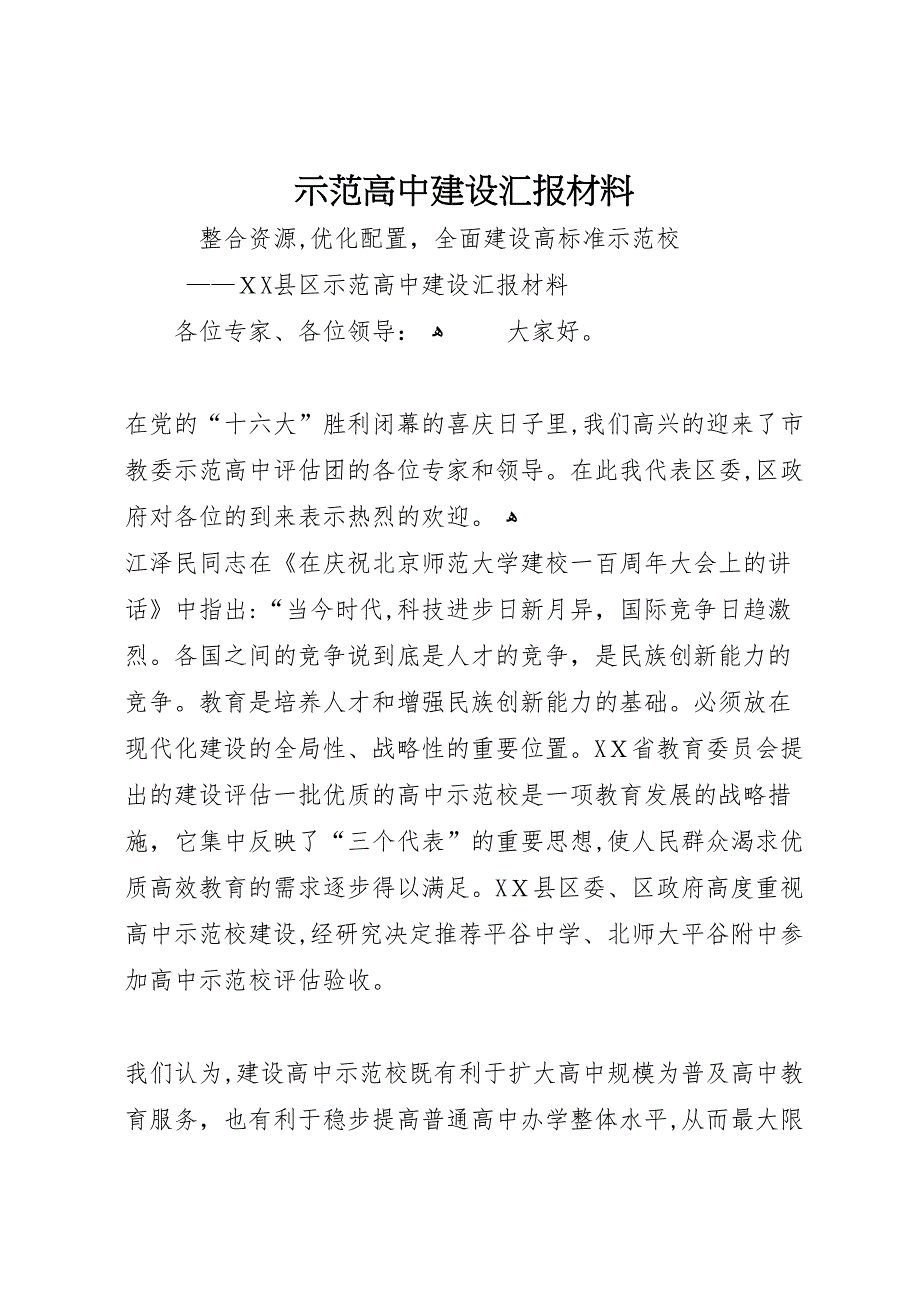 示范高中建设汇报材料
整合资源,优化配置，全面建设高标准示范校
——XX县区示范高中建设汇报材料
各位专家、各位领导： ﻫ 大家好。
在党的“十六大”胜利闭幕的喜庆日子里,我们高兴的迎来了市
教委示范高中评估团的各位专家和领导。在此我代表区委,区政
府对各位的到来表示热烈的欢迎。 ﻫ
江泽民同志在《在庆祝北京师范大学建校一百周年大会上的讲
话》中指出:“当今时代,科技进步日新月异，国际竞争日趋激
烈。各国之间的竞争说到底是人才的竞争，是民族创新能力的
竞争。教育是培养人才和增强民族创新能力的基础。必须放在
现代化建设的全局性、战略性的重要位置。XX省教育委员会提
出的建设评估一批优质的高中示范校是一项教育发展的战略措
施，它集中反映了“三个代表”的重要思想,使人民群众渴求优
质高效教育的需求逐步得以满足。XX县区委、区政府高度重视
高中示范校建设,经研究决定推荐平谷中学、北师大平谷附中参
加高中示范校评估验收。
我们认为,建设高中示范校既有利于扩大高中规模为普及高中教
育服务，也有利于稳步提高普通高中办学整体水平,从而最大限